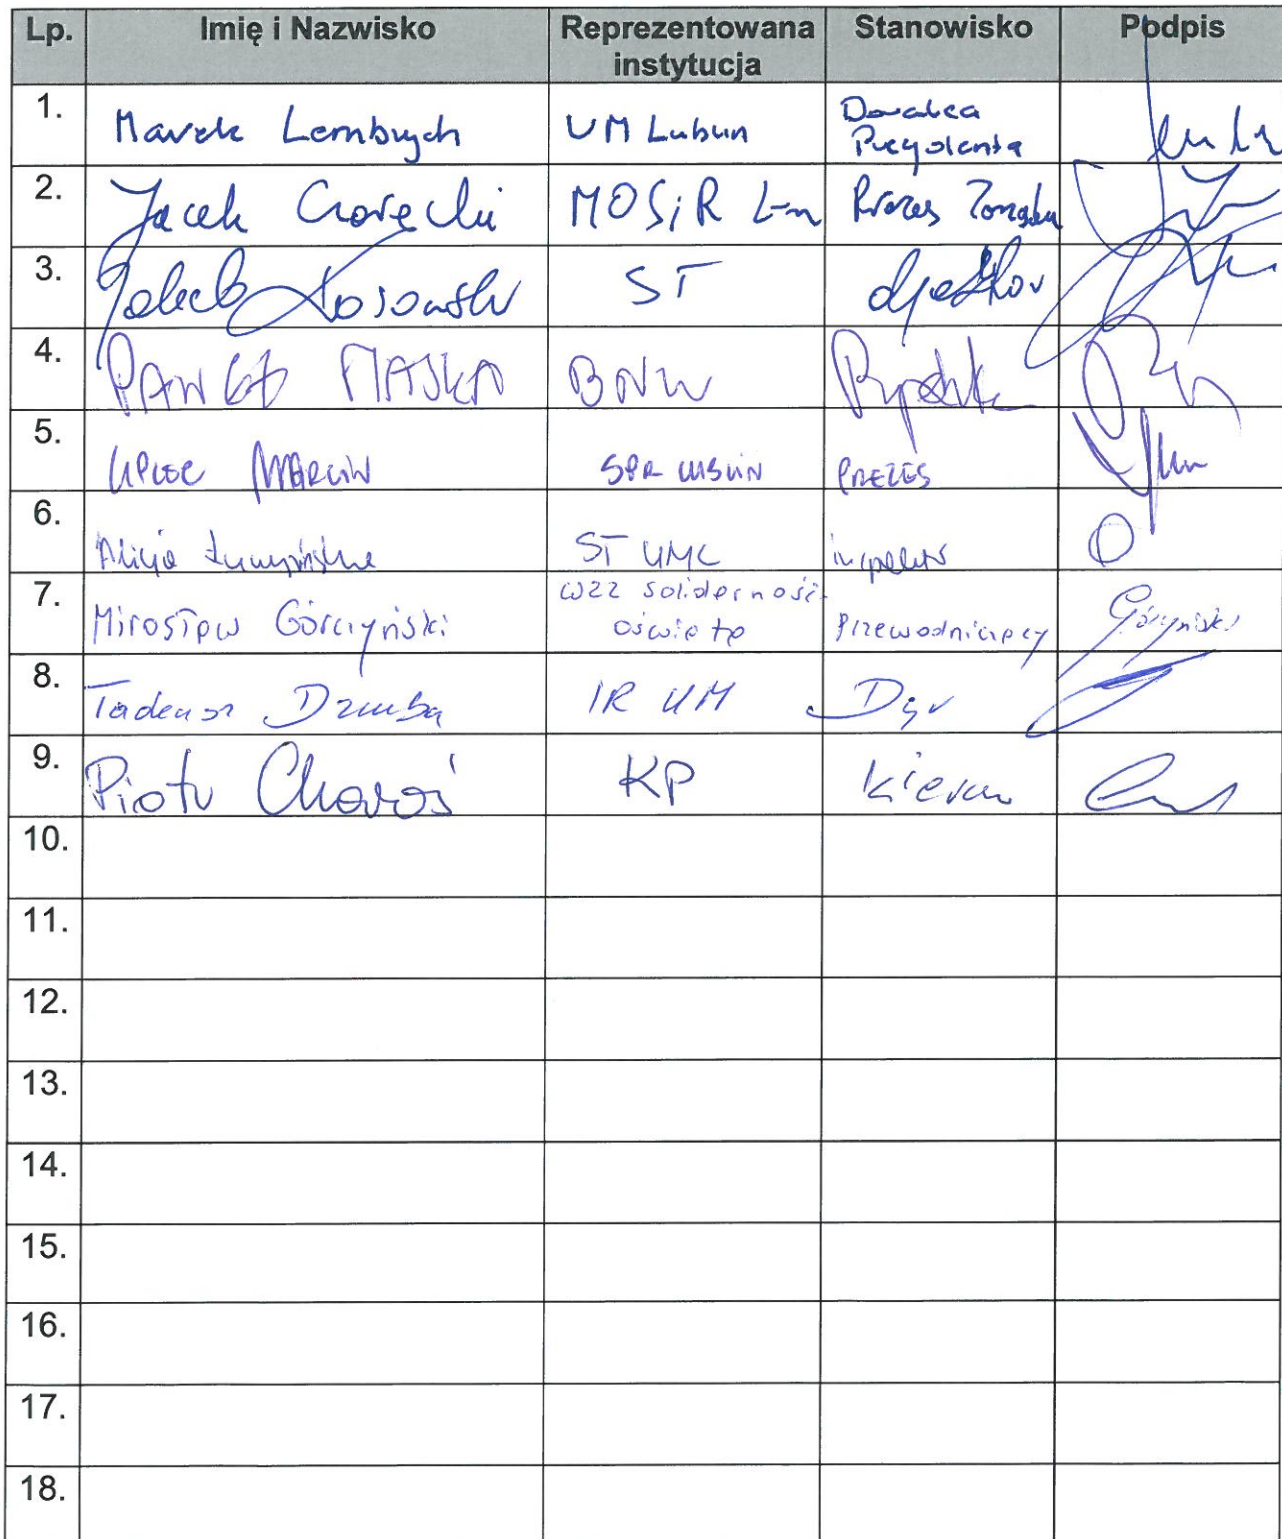 Lp. Imię i Nazwisko Reprezentowana instytucja Stanowisko Podpis
1. Marek Lembrych UM Lublin Doradca Prezydenta
2. Jacek MOSiR L-n Prezes Zarządu
3. Jakub Kosowski ST dyrektor
4. PAWEŁ MAJKA BNW
5. MARCIN SPR LUBLIN PREZES
6. Alicja ST UML inspektor
7. Mirosław Górczyński WZZ Solidarność Oświata Przewodniczący Górczyński
8. Tadeusz Dziuba IR UM Dyr
9. Piotr Choroś KP Kierow
10.
11.
12.
13.
14.
15.
16.
17.
18.